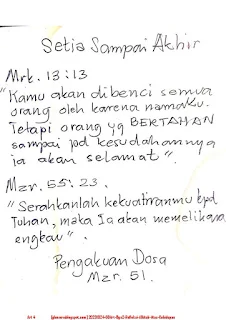 Setia Sampai Akhir
Mrk. 13:13
"Kamu akan dibenci semua
orang oleh karena namaKu.
Tetapi orang yg BERTAHAN
sampai pd kesudahannya
ia akan selamat".
Mzr. 55:23.
"Serahkanlah kekuatiranmu kpd
Tuhan, maka Ia akan memelihara
engkau".
Pengakuan Dosa
Mzr. 51.